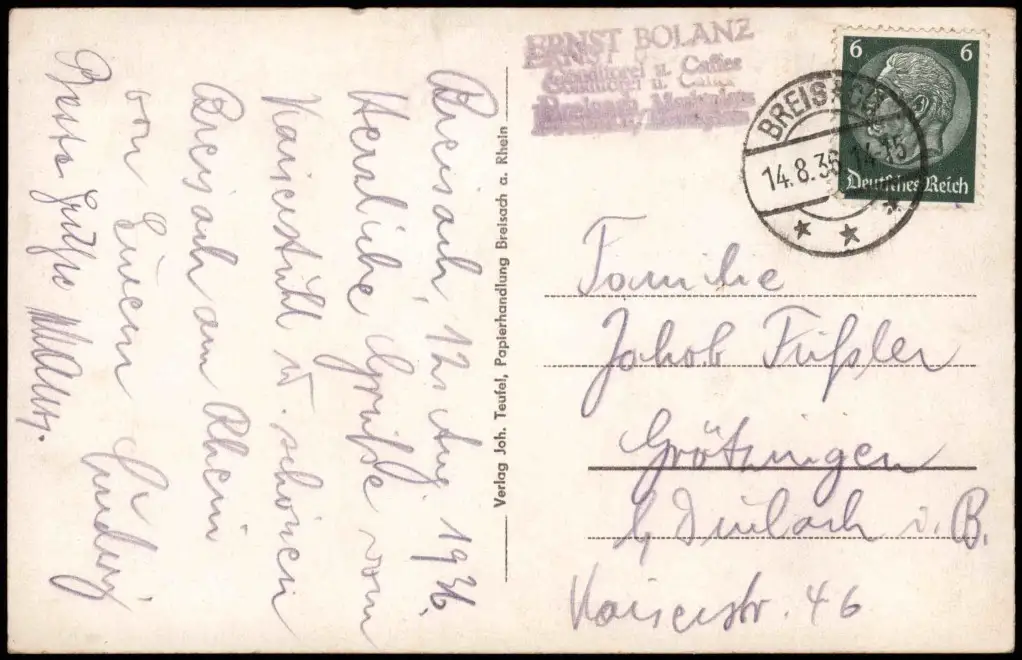 Breisach, 12. Aug. 1936.
Herzliche Grüße vom
Kaiserstuhl u. schönen
Breisach am Rhein
von Euerm
Beste Grüße
Verlag Joh. Teufel, Papierhandlung Breisach a. Rhein
ERNST BOLANZ
Conditorei u. Caffee
Breisach, Marktplatz
6 6
Deutsches Reich
BREISACH
14.8.36.14-15
Familie
Jakob Füßler
Grötzingen
b/ Durlach i. B.
Kaiserstr. 46